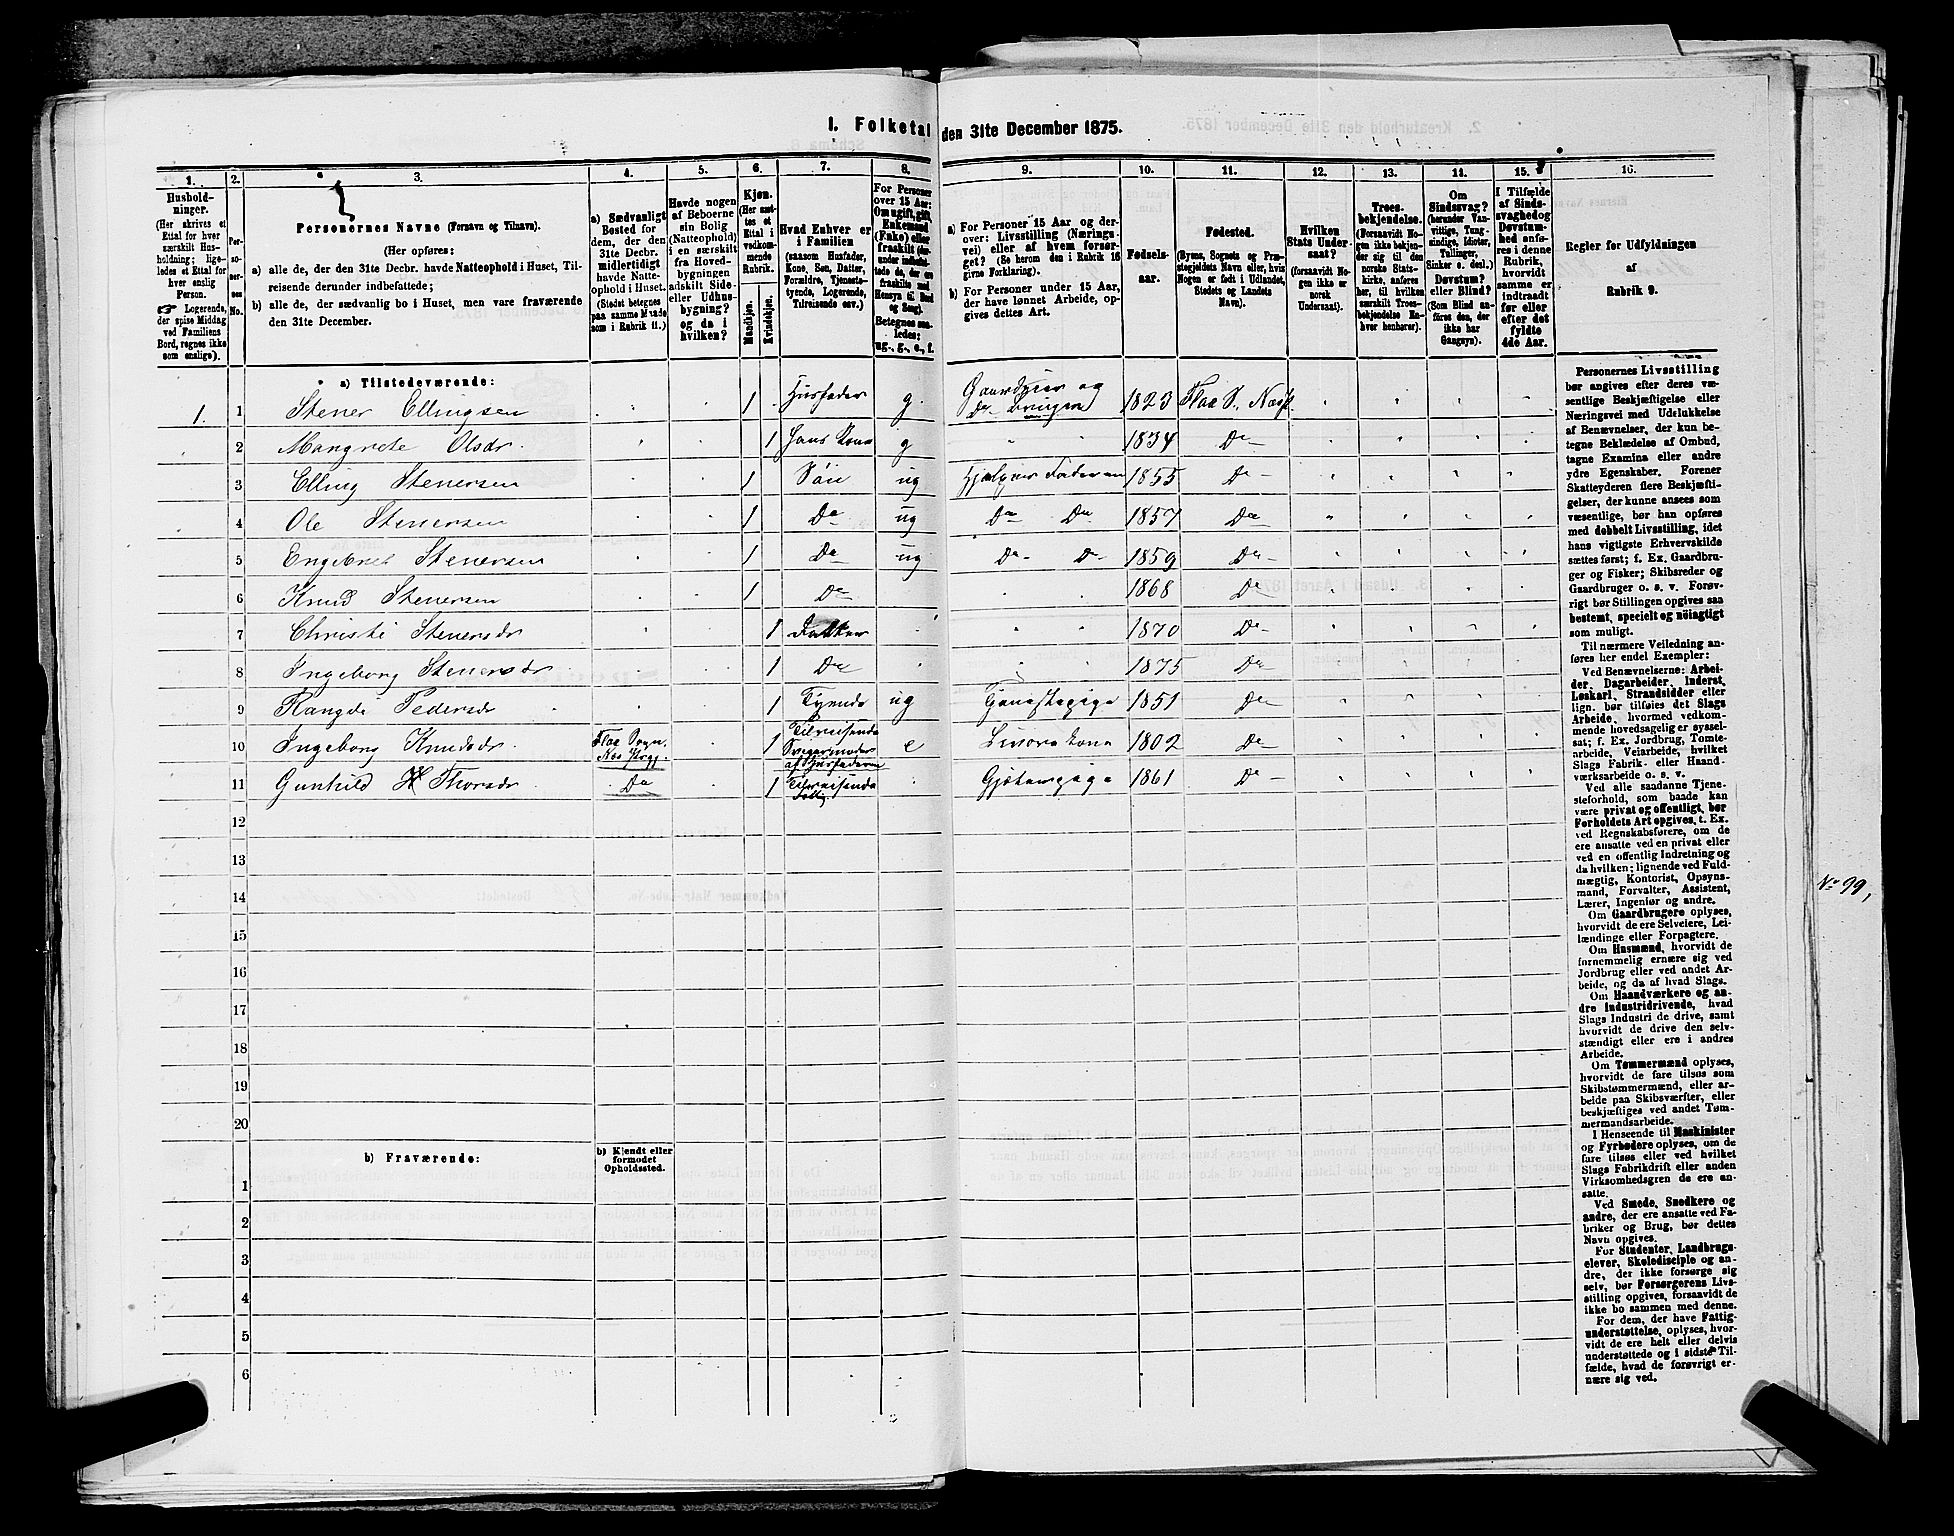 I. Folketal den 31te December 1875.
1. 2. 3. 4. 5. 6. 7. 8. 9. 10. 11. 12. 13. 14. 15. 16.
Hushold-
ninger.
(Her skrives et
Ettal for hver
særskilt Hus-
holdning; lige-
ledes et Ettal for
hver enslig
Person.
☞ Logerende,
der spise Middag
ved Familiens
Bord, regnes ikke
som enslige).
Per-
so-
ner-
nes
No.
Personernes Navne (Fornavn og Tilnavn).
(Her opføres:
a) alle de, der den 31te Decbr. havde Natteophold i Huset, Til-
reisende derunder indbefattede;
b) alle de, der sædvanlig bo i Huset, men vare fraværende
den 31te December.
a) Sædvanligt
Bosted for
dem, der den
31te Decbr.
midlertidigt
havde Natte-
ophold i Huset.
(Stedet betegnes
paa samme Maade
som i Rubrik 11.)
Havde nogen
af Beboerne
sin Bolig
(Natteophold)
i en særskilt
fra Hoved-
bygningen
adskilt Side-
eller Udhus-
bygning?
og da i
hvilken?
Kjøn.
(Her sæt-
tes et
Ettal i
vedkom-
mende
Rubrik.
Mandkjøn.
Kvindekjøn.
Hvad Enhver er
i Familien
(saasom Husfader,
Kone, Søn, Datter,
Forældre, Tjeneste-
tyende, Logerende,
Tilreisende osv.)
For Personer
over 15 Aar:
Om ugift, gift,
Enkemand
(Enke) eller
fraskilt
Betegnes saa-
ledes:
ug., g., e., f.
a) For Personer 15 Aar og der-
over: Livsstilling (Nærings-
vei) eller af hvem forsør-
get? (Se herom den i Rubrik 16
givne Forklaring).
b) For Personer under 15 Aar,
der have lønnet Arbeide, op-
gives dettes Art.
Fødsels-
aar.
Fødested.
(Byens, Sognets og Præ-
stegjeldets Navn eller, hvis
Nogen er født i Udlandet,
Stedets og Landets
Navn).
Hvilken
Stats Under-
saat?
(forsaavidt No-
gen ikke er
norsk
Undersaat).
Troes-
bekjendelse.
(Forsaavidt No-
gen ikke bekjen-
der sig til den
norske Stats-
kirke, anføres
her, til hvilken
særskilt Troes-
bekjendelse En-
hver henhører).
Om
Sindssvag?
(herunder Van-
vittige, Tung-
sindige, Idioter,
Tullinger,
Sinker o. desl.)
Døvstum?
eller Blind?
(Som Blind an-
føres den, der
ikke har
Gangsyn).
I Tilfælde
af Sinds-
svaghed og
Døvstum-
hed anfø-
res i denne
Rubrik,
hvorvidt
samme er
indtraadt
før eller
efter det
fyldte
4de Aar.
Regler for Udfyldningen
af
Rubrik 9.
a) Tilstedeværende:
1. 1 Stener Ellingsen 1 Husfader g. Gaardeier og Do Bruger 1823 Flaa S., Næs P.
2 Mangrete Olsdr. 1 Hans Kone g 1834 Do
3 Elling Stenersen 1 Søn ug Hjælper Faderen 1855 Do
4 Ole Stenersen 1 Do ug Do Do 1857 Do
5 Engebret Stenersen 1 Do ug Do Do 1859 Do
6 Knud Stenersen 1 Do 1868 Do
7 Christi Stenersdr 1 Datter 1870 Do
8 Ingeborg Stenersdr 1 Do 1875 Do
9 Rangdi Pedersdr 1 Tyende ug Tjenestepige 1851 Do
10 Ingeborg Knudsdr. Flaa Sogn. Næs Prgj. 1 Tilreisende Svigermoder af Husfaderen e Livøre Kone 1802 Do
11 Gunhild Thorsdr Do 1 Tilreisende Gjæterpige 1861 Do
12
13
14
15
16
17
18
19
20
b) Fraværende:
b) Kjendt eller
formodet
Opholdssted.
1
2
3
4
5
6
Personernes Livsstilling
bør angives efter deres væ-
sentlige Beskjæftigelse eller
Næringsvei med Udelukkelse
af Benævnelser, der kun be-
tegne Beklædelse af Ombud,
tagne Examina eller andre
ydre Egenskaber. Forener
Skatteyderen flere Beskjæfti-
gelser, der kunne ansees som
væsentlige, bør han opføres
med dobbelt Livsstilling, idet
hans vigtigste Erhvervskilde
sættes først; f. Ex. Gaardbru-
ger og Fisker; Skibsreder og
Gaardbruger o. s. v. Forøv-
rigt bør Stillingen opgives saa
bestemt, specielt og nöiagtigt
som muligt.
Til nærmere Veiledning an-
føres her endel Exempler:
Ved Benævnelserne: Arbei-
der, Dagarbeider, Inderst,
Løskarl, Strandsidder eller
lign. bør tilføies det Slags
Arbeide, hvormed vedkom-
mende hovedsagelig er syssel-
sat; f. Ex. Jordbrug, Tomte-
arbeide, Veiarbeide, hvilket
Slags Fabrik- eller Haand-
værksarbeide o. s. v.
Ved alle saadanne Tjene-
steforhold, som baade kan
være privat og offentligt, bør
Forholdets Art opgives, t. Ex.
ved Regnskabsførere, om de
ere ansatte ved en privat eller
ved en offentlig Indretning og
da hvilken; lignende ved Fuld-
mægtig, Kontorist, Opsyns-
mand, Forvalter, Assistent,
Lærer, Ingeniør og andre.
Om Gaardbrugere oplyses,
hvorvidt de ere Selveiere, Lei-
lændinge eller Forpagtere.
Om Husmænd, hvorvidt de
fornemmelig ernære sig ved
Jordbrug eller ved andet Ar-
beide, og da af hvad Slags.
Om Haandværkere og an-
dre Industridrivende, hvad
Slags Industri de drive, samt
hvorvidt de drive den selv-
stændigt eller ere i andres
Arbeide.
Om Tømmermænd oplyses,
hvorvidt de fare tilsøs som
Skibstømmermænd, eller ar-
beide paa Skibsværfter, eller
beskjæftiges ved andet Tøm-
mermandsarbeide.
I Henseende til Maskinister
og Fyrbødere oplyses, om de
fare tilsøs eller ved hvilket
Slags Fabrikdrift eller anden
Virksomhedsgren de ere an-
satte.
Ved Smede, Snedkere og
andre, der ere ansatte ved Fa-
briker og Brug, bør dettes
Navn opgives.
For Studenter, Landbrugs-
elever, Skoledisciple og an-
dre, der ikke forsørge sig
selv, bør Forsørgerens Livs-
stilling opgives, forsaavidt de
ikke bo sammen med denne.
For dem, der have Fattig-
understøttelse, oplyses, hvor-
vidt de ere helt eller delvis
understøttede og i sidste Til-
fælde, hvad de forøvrigt er-
nære sig ved.
No 99,